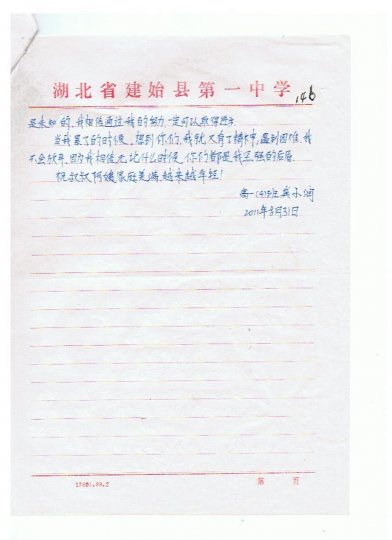 湖北省建始县第一中学
146
是未知的,我相信通过我的努力一定可以取得进步
当我累了的时候,想到你们,我就又有了精神,遇到困难,我
不会放弃,因为我相信无论什么时候,你们都是我坚强的后盾.
祝叔叔阿姨家庭美满,越来越年轻!
高一(43)班
2011年8月31日
17601.89.2
第 页